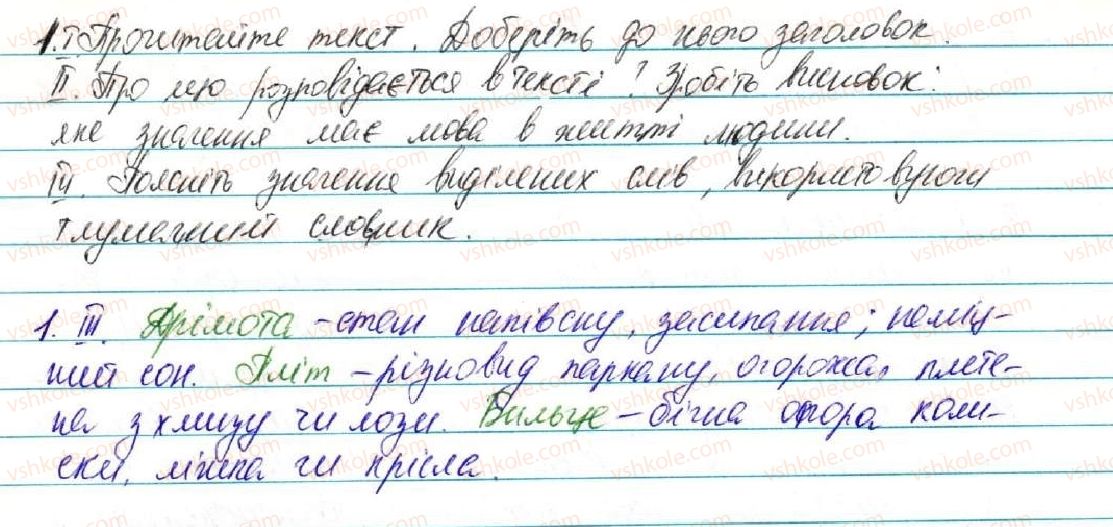 1. I Прочитайте текст. Доберіть до нього заголовок.
II. Про що розповідається в тексті? Зробіть висновок:
яке значення має мова в житті людини.
III. Поясніть значення виділених слів, використовуючи
тлумачний словник.
1. III. Дрімота – стан напівсну, засипання; неміц-
ний сон. Пліт – різновид паркану, огорожа, плете-
на з хмизу чи лози. Бильце – бічна опора коли-
ски, ліжка чи крісла.